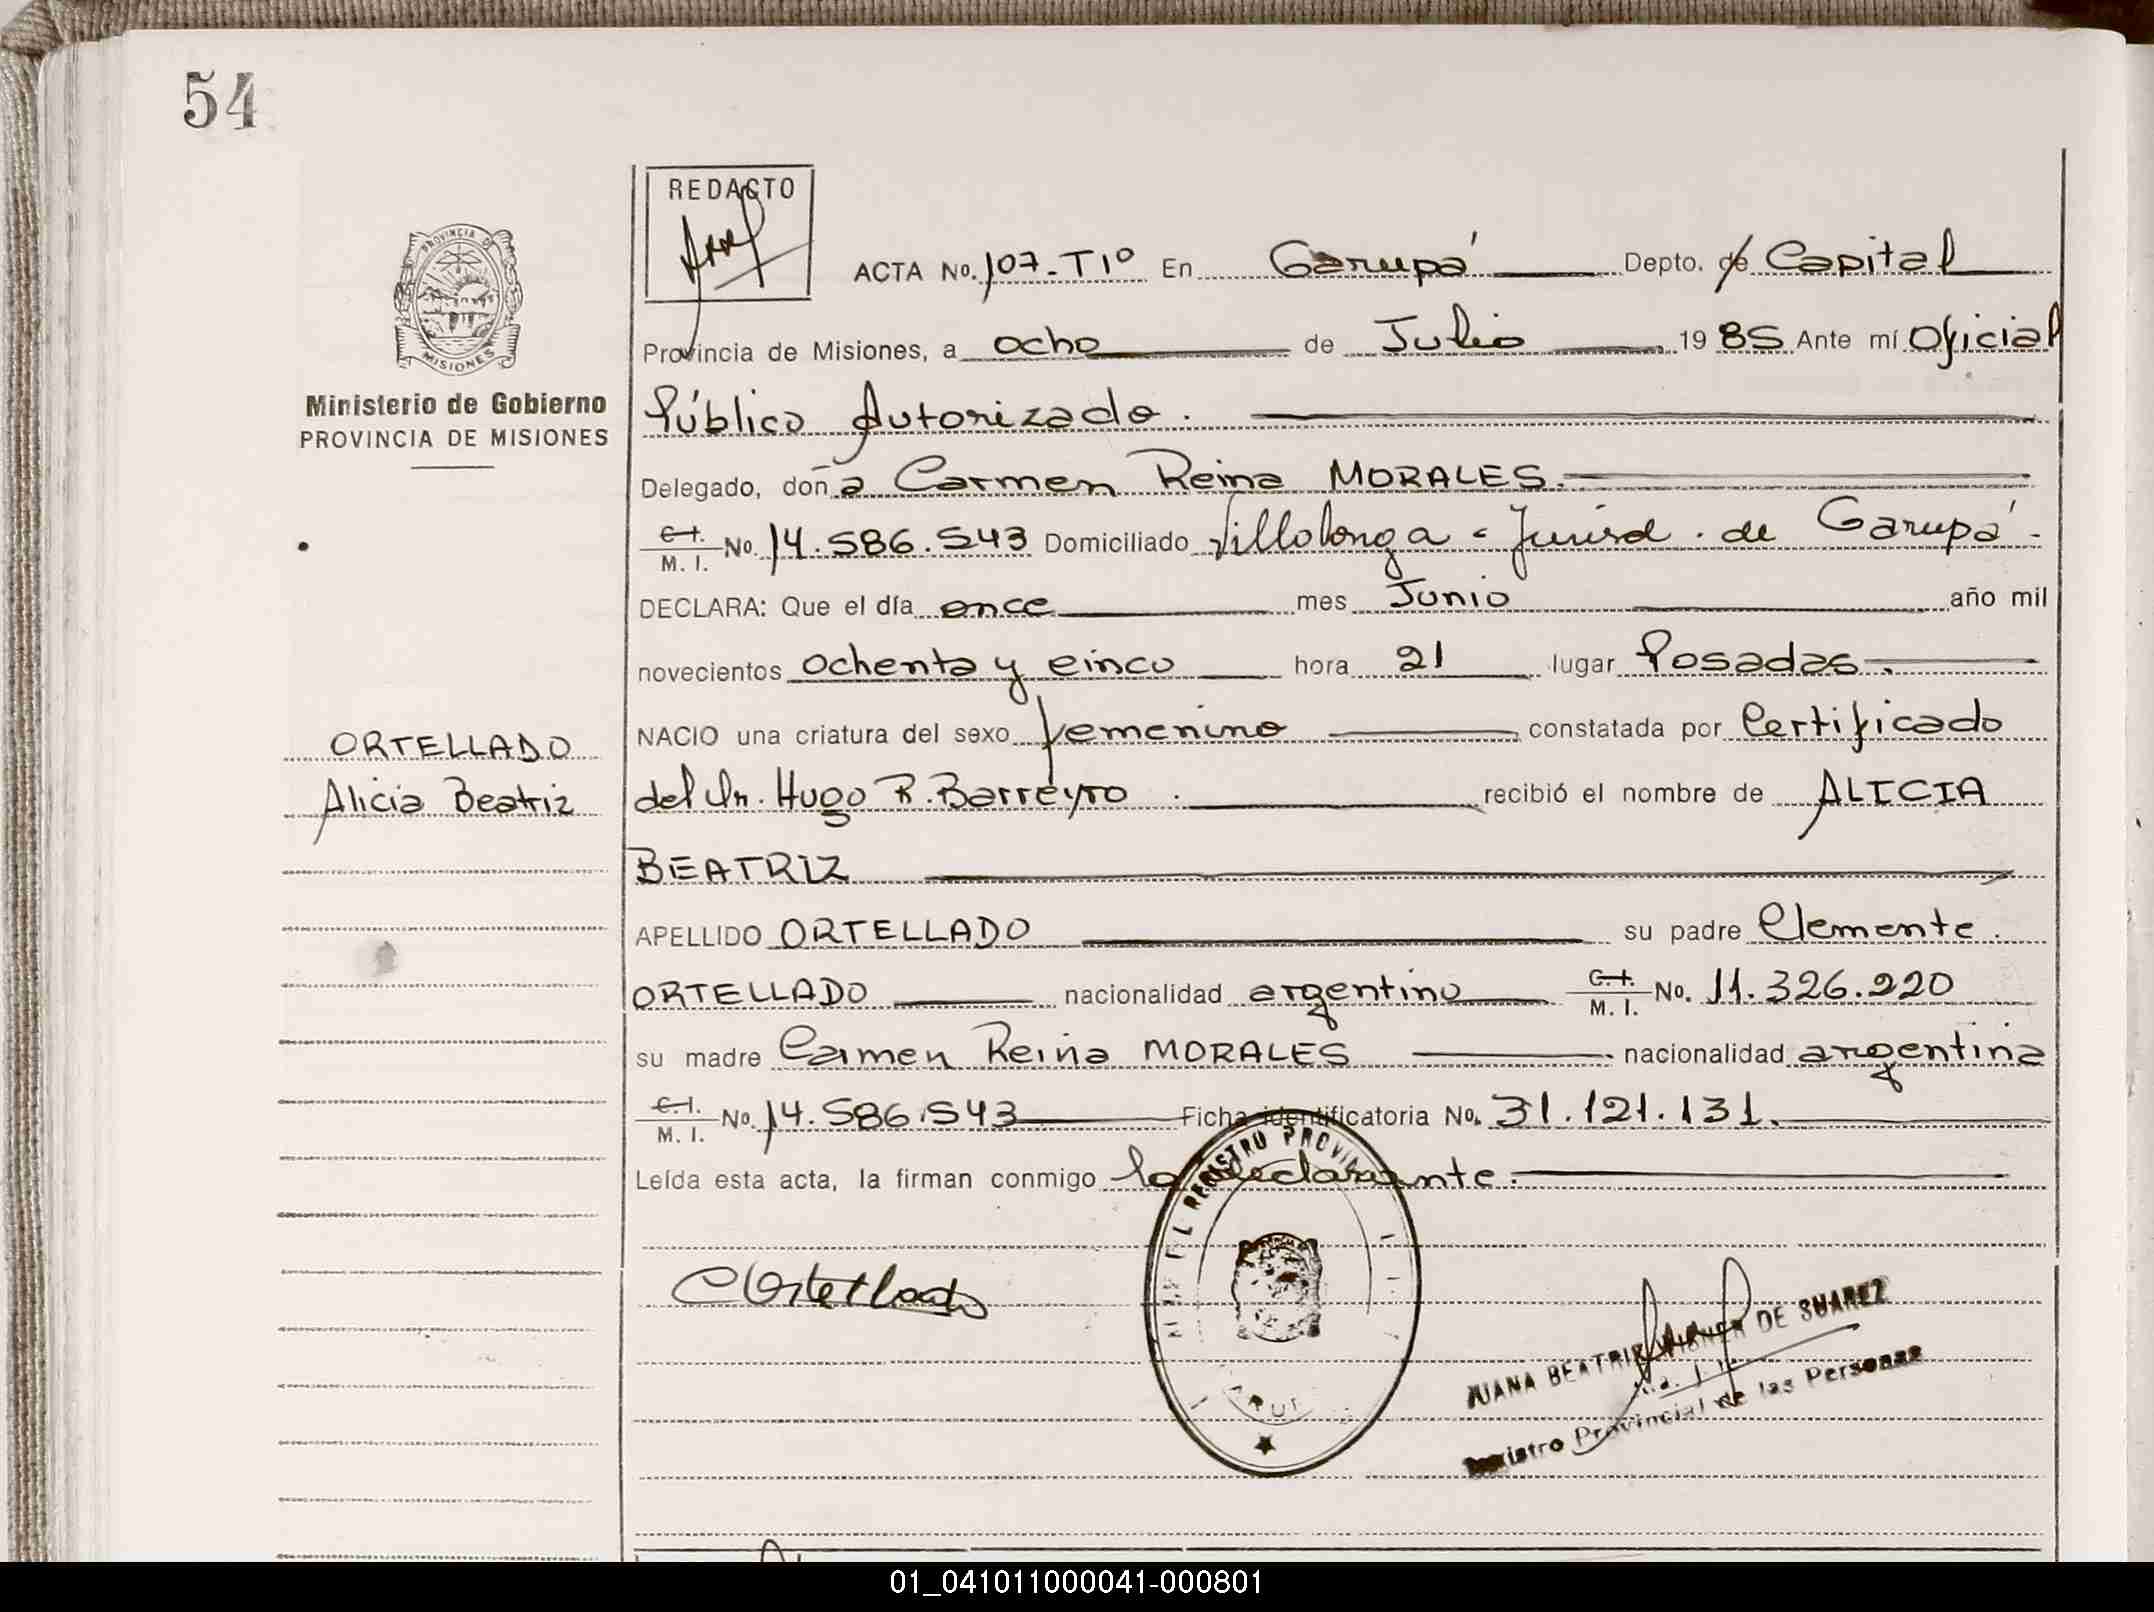 54
REDACTO
ACTA No. 107-T1º En Garupá Depto. de Capital
PROVINCIA DE
MISIONES
Provincia de Misiones, a ocho de Julio 1985 Ante mí Oficial
Ministerio de Gobierno
PROVINCIA DE MISIONES
Público Autorizado.
Delegado, doña Carmen Reina MORALES.
C.I.
M. I. No. 14.586.543 Domiciliado Villalonga - Jurisd. de Garupá -
DECLARA: Que el día once mes Junio año mil
novecientos ochenta y cinco hora 21 lugar Posadas.
NACIO una criatura del sexo femenino constatada por Certificado
ORTELLADO
Alicia Beatriz
del Dr. Hugo R. Barreyro. recibió el nombre de ALICIA
BEATRIZ
APELLIDO ORTELLADO su padre Clemente
ORTELLADO nacionalidad argentino C.I.
M. I. No. 11.326.220
su madre Carmen Reina MORALES nacionalidad argentina
C.I.
M. I. No. 14.586.543 Ficha identificatoria No. 31.121.131.
Leída esta acta, la firman conmigo la declarante.
REGISTRO PROVINCIAL
C Ortellado
JUANA BEATRIZ DE SUAREZ
Registro Provincial de las Personas
01_041011000041-000801